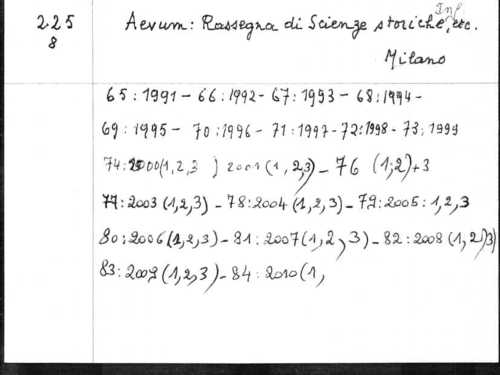 225 Aevum: Rassegna di Scienze storiche, etc.
8
Milano
65:1991 - 66:1992 - 67:1993 - 68:1994 -
69:1995 - 70:1996 - 71:1997 - 72:1998 - 73:1999
74:2000(1,2,3) 2001(1,2,3) - 76 (1,2)+3
77:2003(1,2,3) - 78:2004(1,2,3) - 79:2005:1,2,3
80:2006(1,2,3) - 81:2007(1,2,3) - 82:2008(1,2,3)
83:2009(1,2,3) - 84:2010(1,